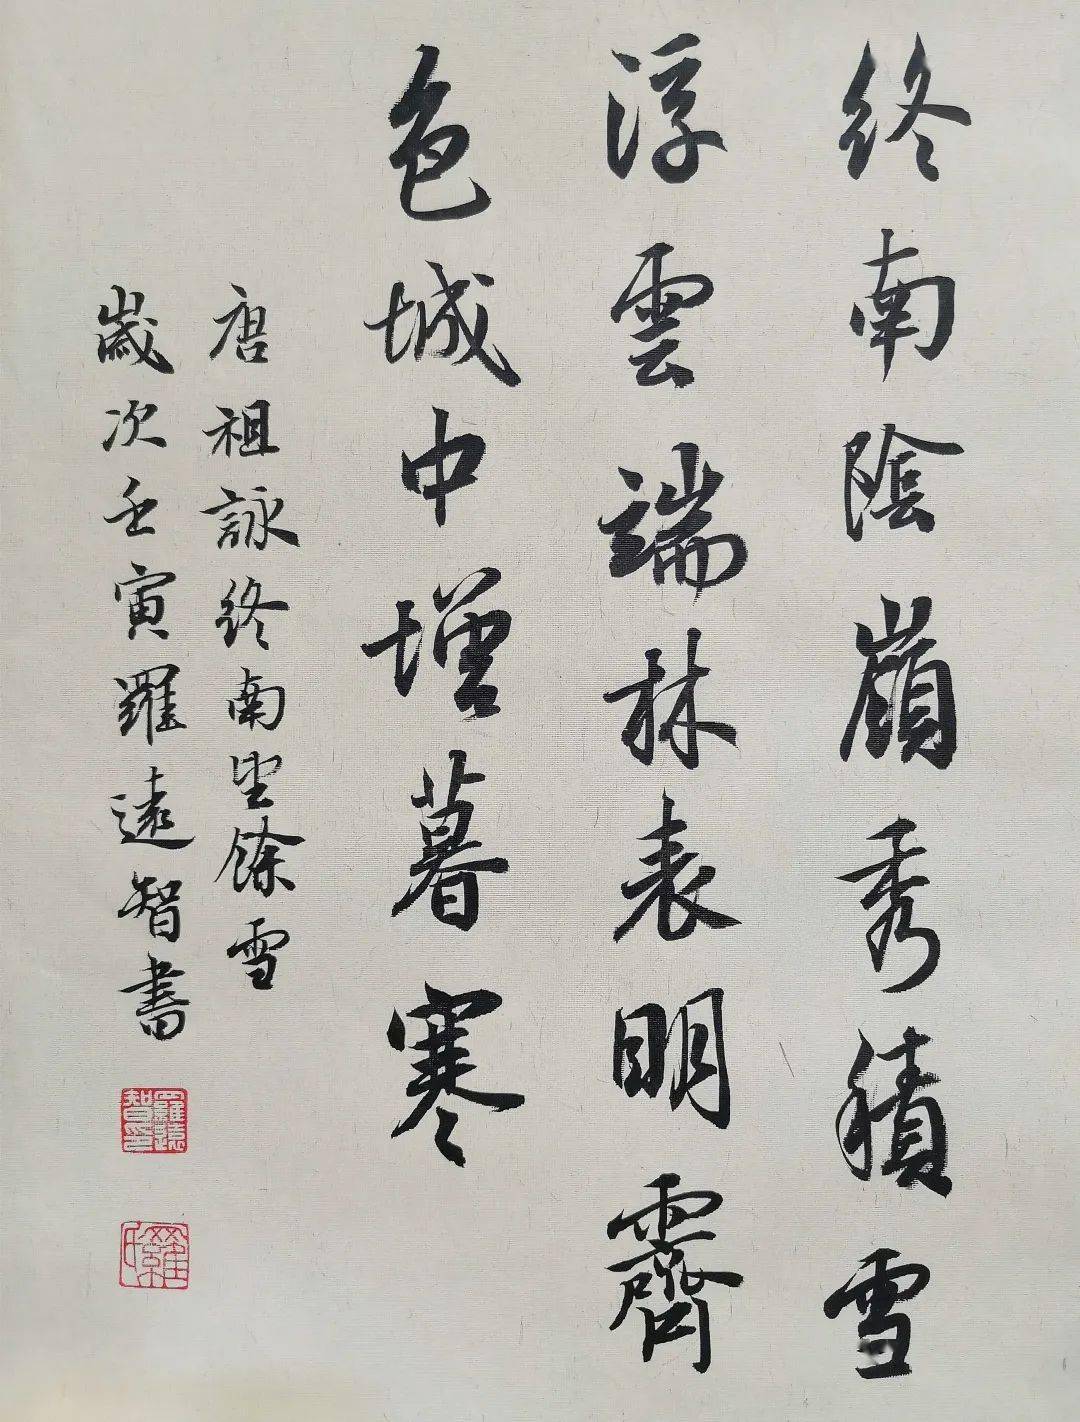 終南陰嶺秀積雪
浮雲端林表明霽
色城中增暮寒
唐祖詠終南望餘雪
歲次壬寅羅遠智書
羅遠智印
羅氏